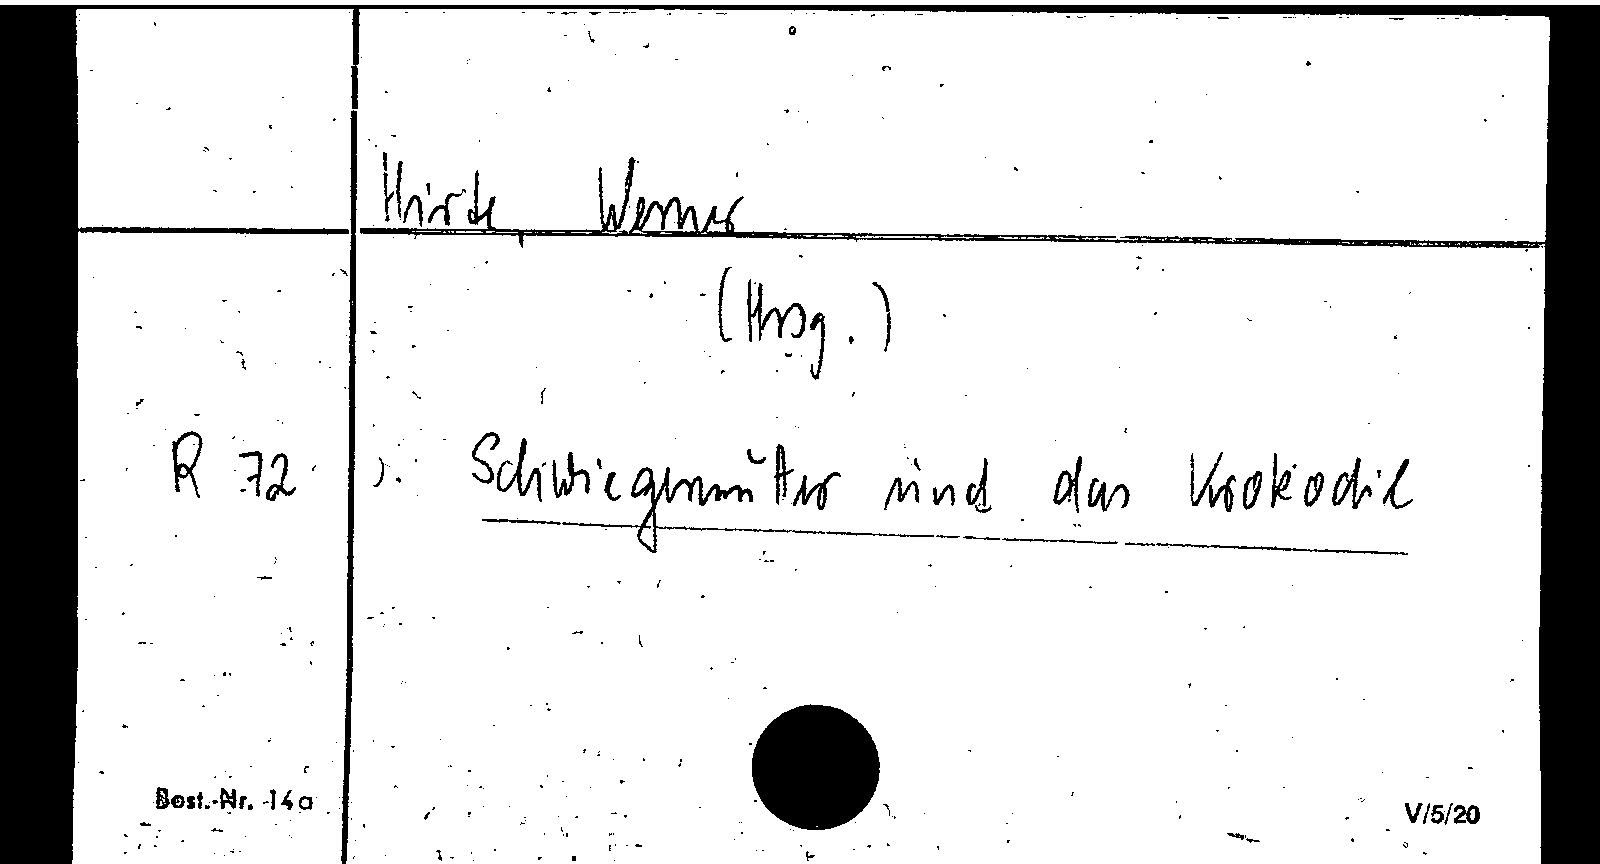 Hirte, Werner
(Hrsg.)
R 72 Schwiegermutter und das Krokodil
Best.-Nr. 14a
V/5/20